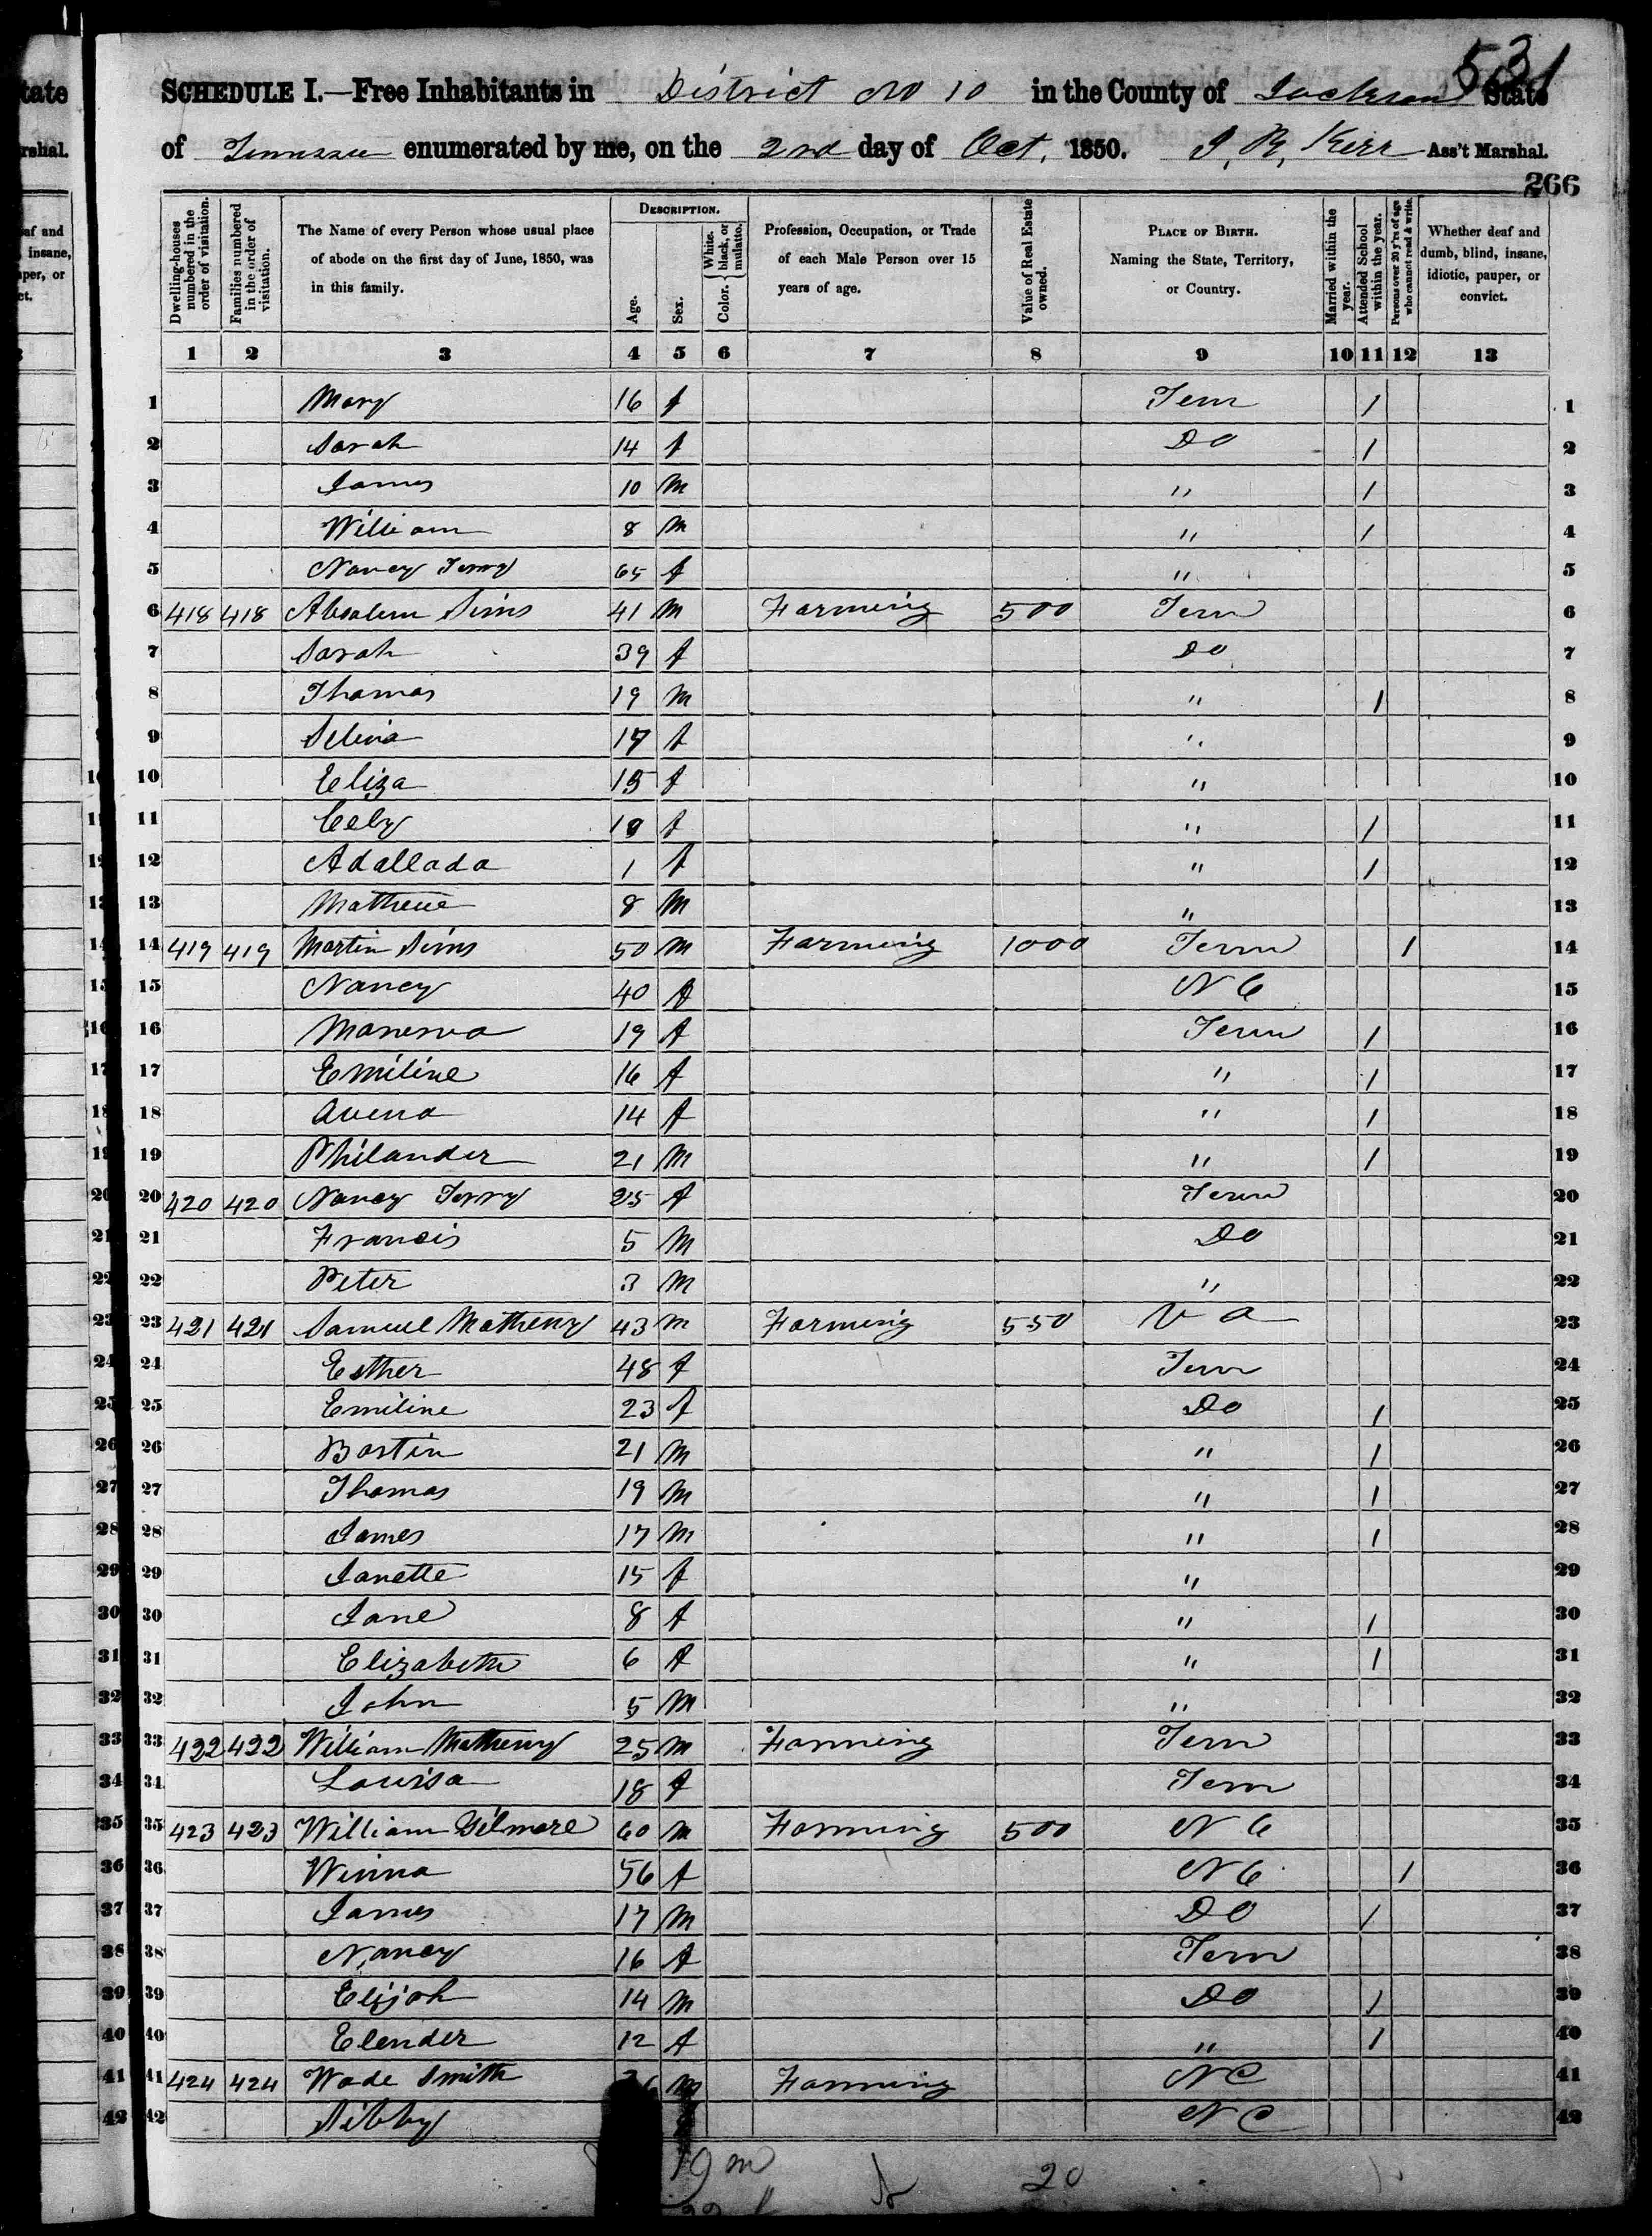 531
SCHEDULE I.—Free Inhabitants in District No 10 in the County of Jackson State
of Tennessee enumerated by me, on the 2nd day of Oct. 1850. J. R. Kerr Ass't Marshal.
266
Dwelling-houses numbered in the order of visitation.
Families numbered in the order of visitation.
The Name of every Person whose usual place of abode on the first day of June, 1850, was in this family.
DESCRIPTION.
Age.
Sex.
Color. White, black, or mulatto.
Profession, Occupation, or Trade of each Male Person over 15 years of age.
Value of Real Estate owned.
PLACE OF BIRTH. Naming the State, Territory, or Country.
Married within the year.
Attended School within the year.
Persons over 20 y'rs of age who cannot read & write.
Whether deaf and dumb, blind, insane, idiotic, pauper, or convict.
1 2 3 4 5 6 7 8 9 10 11 12 13
1 Mary 16 f Tenn 1 1
2 Sarah 14 f Do 1 2
3 James 10 m " 1 3
4 William 8 m " 1 4
5 Nancy Terry 65 f " 5
6 418 418 Absalem Sims 41 m Farming 500 Tenn 6
7 Sarah 39 f Do 7
8 Thomas 19 m " 1 8
9 Selina 17 f " 9
10 Eliza 15 f " 10
11 Cely f " 1 11
12 Adallada 1 f " 1 12
13 Mathew 8 m " 13
14 419 419 Martin Sims 50 m Farming 1000 Tenn 1 14
15 Nancy 40 f N C 15
16 Manerva 19 f Tenn 1 16
17 Emiline 16 f " 1 17
18 Avena 14 f " 1 18
19 Philander 21 m " 1 19
20 420 420 Nancy Terry 25 f Tenn 20
21 Francis 5 m Do 21
22 Peter 3 m " 22
23 421 421 Samuel Matheny 43 m Farming 550 V a 23
24 Esther 48 f Tenn 24
25 Emiline 23 f Do 1 25
26 Bostin 21 m " 1 26
27 Thomas 19 m " 1 27
28 James 17 m " 1 28
29 Janette 15 f " 29
30 Jane 8 f " 1 30
31 Elizabeth 6 f " 1 31
32 John 5 m " 32
33 422 422 William Matheny 25 m Farming Tenn 33
34 Louisa 18 f Tenn 34
35 423 423 William Gilmore 60 m Farming 500 N C 35
36 Winna 56 f N C 1 36
37 James 17 m Do 1 37
38 Nancy 16 f Tenn 38
39 Elijah 14 m Do 1 39
40 Elender 12 f " 1 40
41 424 424 Wade Smith m Farming NC 41
42 Sibby NC 42
19 m 20